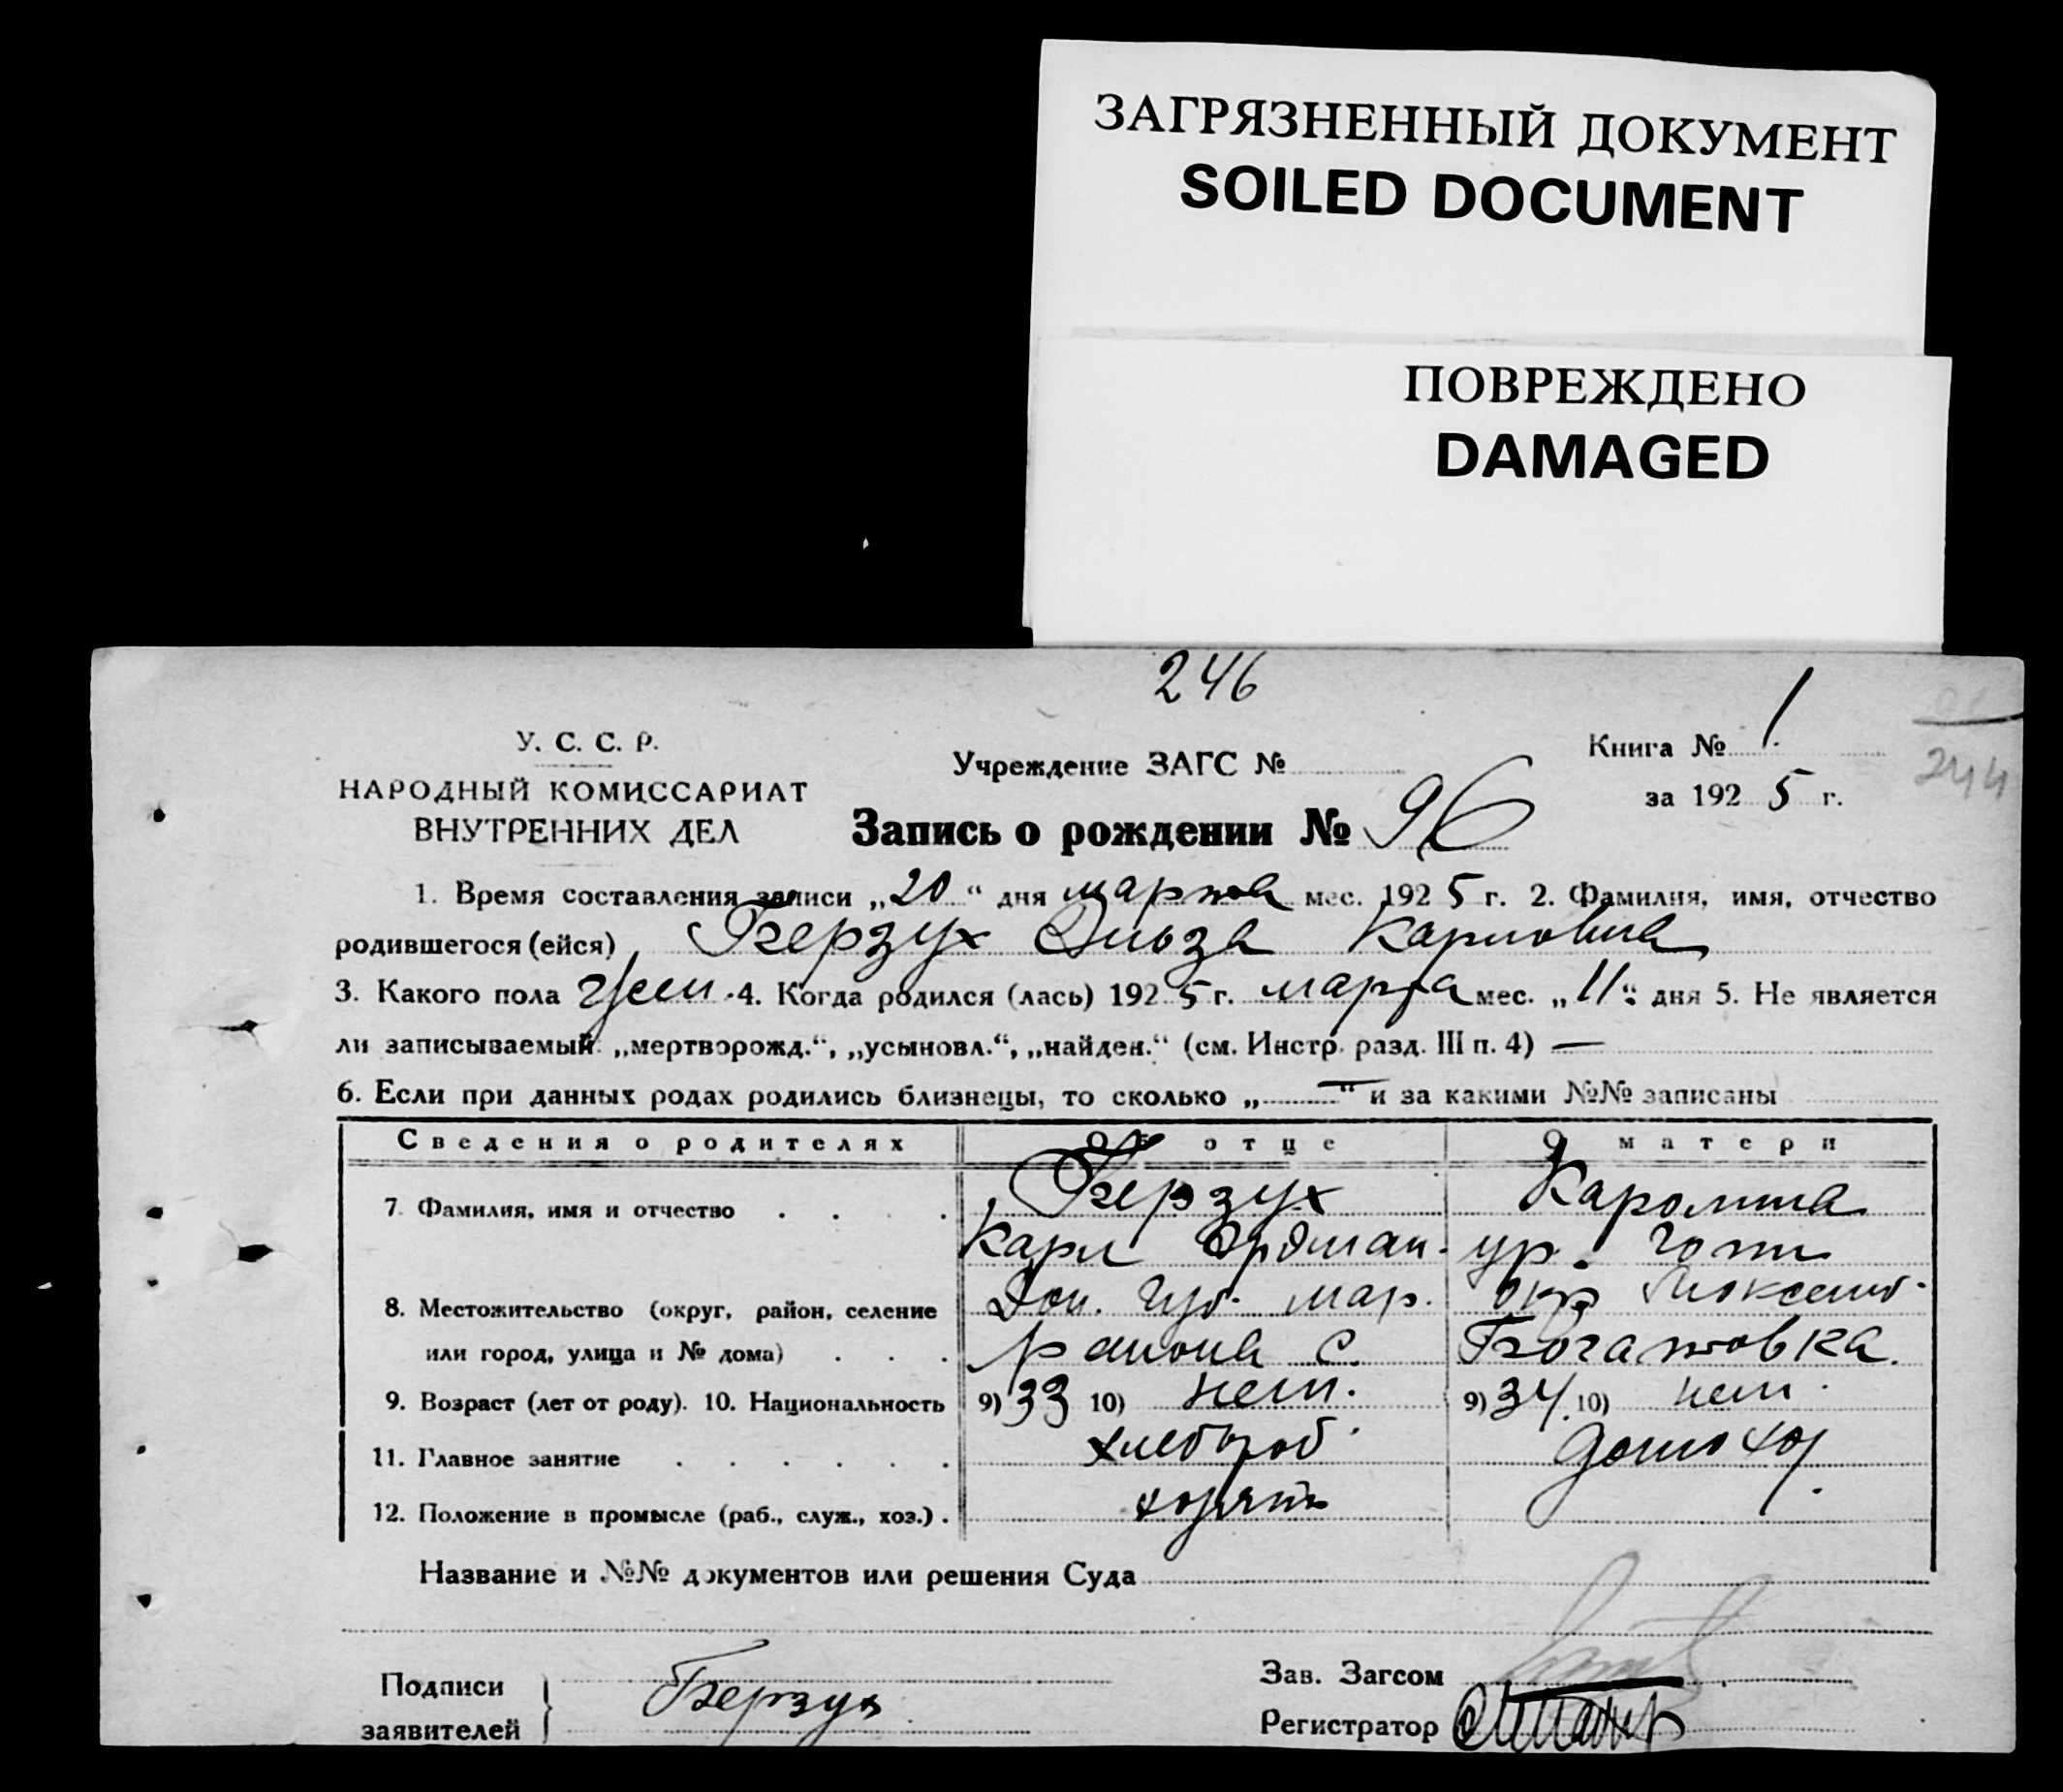 ЗАГРЯЗНЕННЫЙ ДОКУМЕНТ
SOILED DOCUMENT
ПОВРЕЖДЕНО
DAMAGED
246
У. С. С. Р.
НАРОДНЫЙ КОМИССАРИАТ
ВНУТРЕННИХ ДЕЛ
Учреждение ЗАГС №
Книга № 1
за 1925 г.
244
Запись о рождении № 96
1. Время составления записи „20“ дня марта мес. 1925 г. 2. Фамилия, имя, отчество
родившегося (ейся) Берзух Эльза Карловна
3. Какого пола жен. 4. Когда родился (лась) 1925 г. марта мес. „11“ дня 5. Не является
ли записываемый: „мертворожд.“, „усыновл.“, „найден.“ (см. Инстр. разд. III п. 4) —
6. Если при данных родах родились близнецы, то сколько „—“ и за какими №№ записаны
Сведения о родителях Об отце О матери
7. Фамилия, имя и отчество Берзух Каролина
Карл Эрдман. ур.
8. Местожительство (округ, район, селение Дон. губ. мар. окр.
или город, улица и № дома) района с. Богатовка.
9. Возраст (лет от роду). 10. Национальность 9) 33 10) нем. 9) 34 10) нем.
11. Главное занятие хлебороб. домохоз.
12. Положение в промысле (раб., служ., хоз.) хозяин
Название и №№ документов или решения Суда
Подписи
заявителей
Берзух
Зав. Загсом
Регистратор